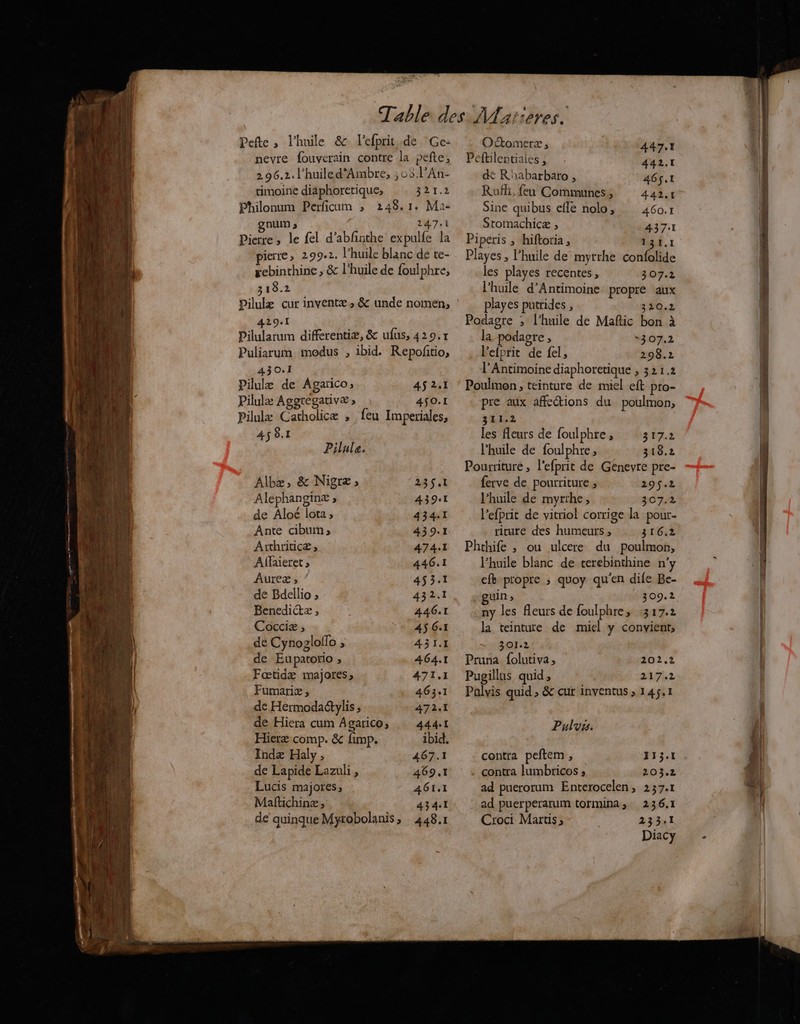 Table des Matieres.
Peſte, l'huile & l'eſprit de Ge-
nevre ſouverain contre la peſte,
296.2. l'huile d'Ambre, 308. l'An-
timoine diaphoretique, 321.2
Philonum Perſicum, 248.1. Ma-
gnum, 247.1
Pierre, le ſel d'abſinthe expulſe la
pierre, 299.2. l'huile blanc de te-
rebinthine, & l'huile de ſoulphre,
318.2
Pilulæ cur inventæ, & unde nomen,
429.1
Pilularum differentiæ, & uſus, 429.1
Puliarum modus, ibid. Repoſitio,
430.1
Pilulæ de Agarico, 452.1
Pilulæ Aggregativæ, 450.1
Pilulæ Catholicæ, ſeu Imperiales,
458.1
Pilulæ.
Albæ, & Nigræ, 235.1
Alephanginæ, 439.1
de Aloé lota, 434.1
Ante cibum, 439.1
Arthriticæ, 474.1
Aſſaieret, 446.1
Aureæ, 453.1
de Bdellio, 432.1
Benedictæ, 446.1
Cocciæ, 456.1
de Cynogloſſo, 431.1
de Eupatorio, 464.1
Fœtidæ majores, 471.1
Fumariæ, 463.1
de Hermodactylis, 472.1
de Hiera cum Agarico, 444.1
Hieræ comp. & ſimp. ibid.
Indæ Haly, 467.1
de Lapide Lazuli, 469.1
Lucis majores, 461.1
Maſtichinæ, 434.1
de quinque Myrobolanis, 448.1
Octomeræ, 447.1
Peſtilentiales, 442.1
de Rhabarbaro, 465.1
Ruffi, ſeu Communes, 442.1
Sine quibus eſſe nolo, 460.1
Stomachicæ, 437.1
Piperis, hiſtoria, 131.1
Playes, l'huile de myrrhe conſolide
les playes recentes, 307.2
l'huile d'Antimoine propre aux
playes putrides, 320.2
Podagre, l'huile de Maſtic bon à
la podagre, 307.2
l'eſprit de ſel, 298.2
l'Antimoine diaphoretique, 321.2
Poulmon, teinture de miel eſt pro-
pre aux affections du poulmon,
311.2
les fleurs de ſoulphre, 317.2
l'huile de ſoulphre, 318.2
Pourriture, l'eſprit de Genevre pre-
ſerve de pourriture, 295.2
l'huile de myrrhe, 307.2
l'eſprit de vitriol corrige la pour-
riture des humeurs, 316.2
Phthiſe, ou ulcere du poulmon,
l'huile blanc de terebinthine n'y
eſt propre, quoy qu'en diſe Be-
guin, 309.2
ny les fleurs de ſoulphre, 317.2
la teinture de miel y convient,
301.2
Pruna ſolutiva, 202.2
Pugillus quid, 217.2
Pulvis quid, & cur inventus, 145.1
Pulvis.
contra peſtem, 113.1
contra lumbricos, 203.2
ad puerorum Enterocelen, 237.1
ad puerperarum tormina, 236.1
Croci Martis, 233.1
Diacy